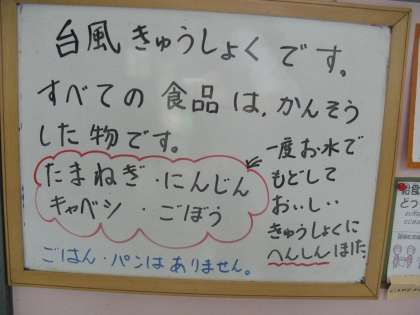 台風きゅうしょくです。
すべての食品は、かんそう
した物です。
たまねぎ・にんじん
キャベシ ごぼう
一度お水で
もどして
おいしい
きゅうしょくに
へんしんほた。
ごはん・パンはありません。